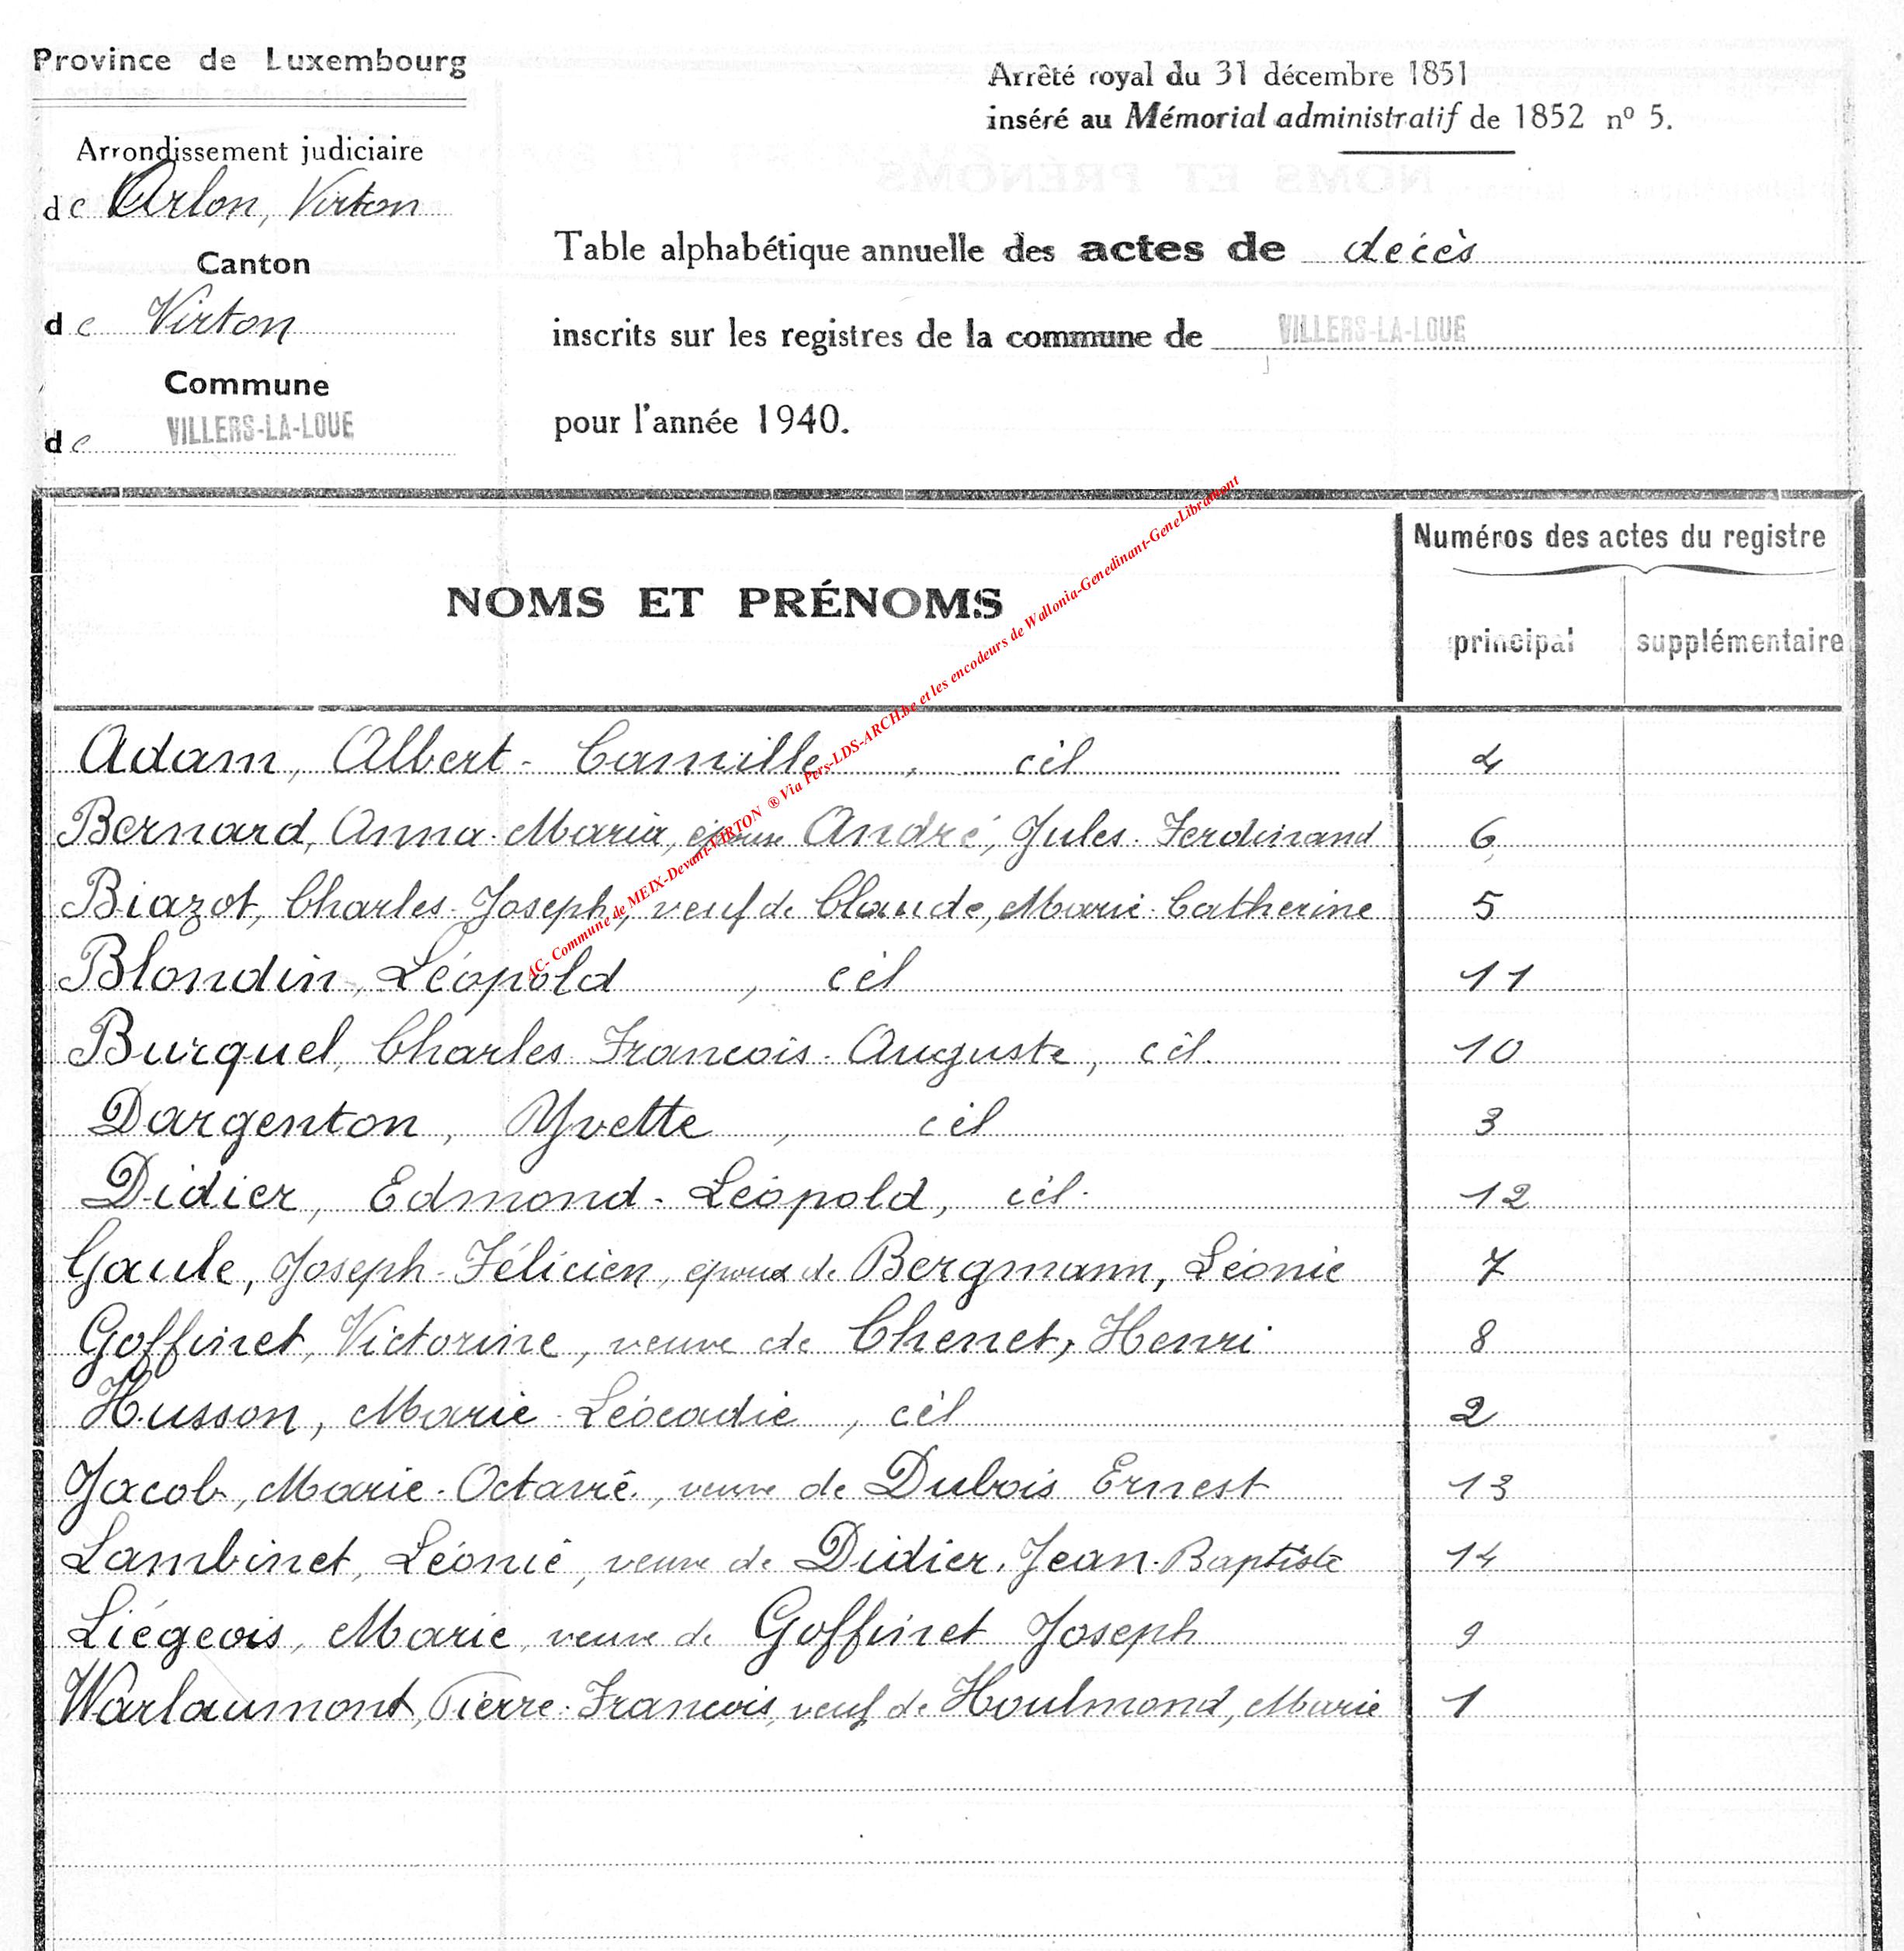 Province de Luxembourg
Arrondissement judiciaire
de Arlon, Virton
Canton
de Virton
Commune
de VILLERS-LA-LOUE
Arrêté royal du 31 décembre 1851
inséré au Mémorial administratif de 1852 nº 5.
Table alphabétique annuelle des actes de décès
inscrits sur les registres de la commune de VILLERS-LA-LOUE
pour l'année 1940.
NOMS ET PRÉNOMS
Numéros des actes du registre
principal supplémentaire
AC- Commune de MEIX-Devant-VIRTON ® Via Pers-LDS-ARCH.be et les encodeurs de Wallonia-Genedinant-GeneLibramont
Adam, Albert-Camille, cél 4
Bernard, Anna-Maria, épouse André, Jules-Ferdinand 6
Biazot, Charles-Joseph, veuf de Claude, Marie-Catherine 5
Blondin, Léopold, cél 11
Burquel, Charles François-Auguste, cél. 10
Dargenton, Yvette, cél 3
Didier, Edmond-Léopold, cél. 12
Gaule, Joseph-Félicien, époux de Bergmann, Léonie 7
Goffinet, Victorine, veuve de Chenet, Henri 8
Husson, Marie-Léocadie, cél 2
Jacob, Marie-Octavie, veuve de Dubois Ernest 13
Lambinet, Léonie, veuve de Didier, Jean-Baptiste 14
Liégeois, Marie, veuve de Goffinet Joseph 9
Warlaumont, Pierre-François, veuf de Houlmond, Marie 1